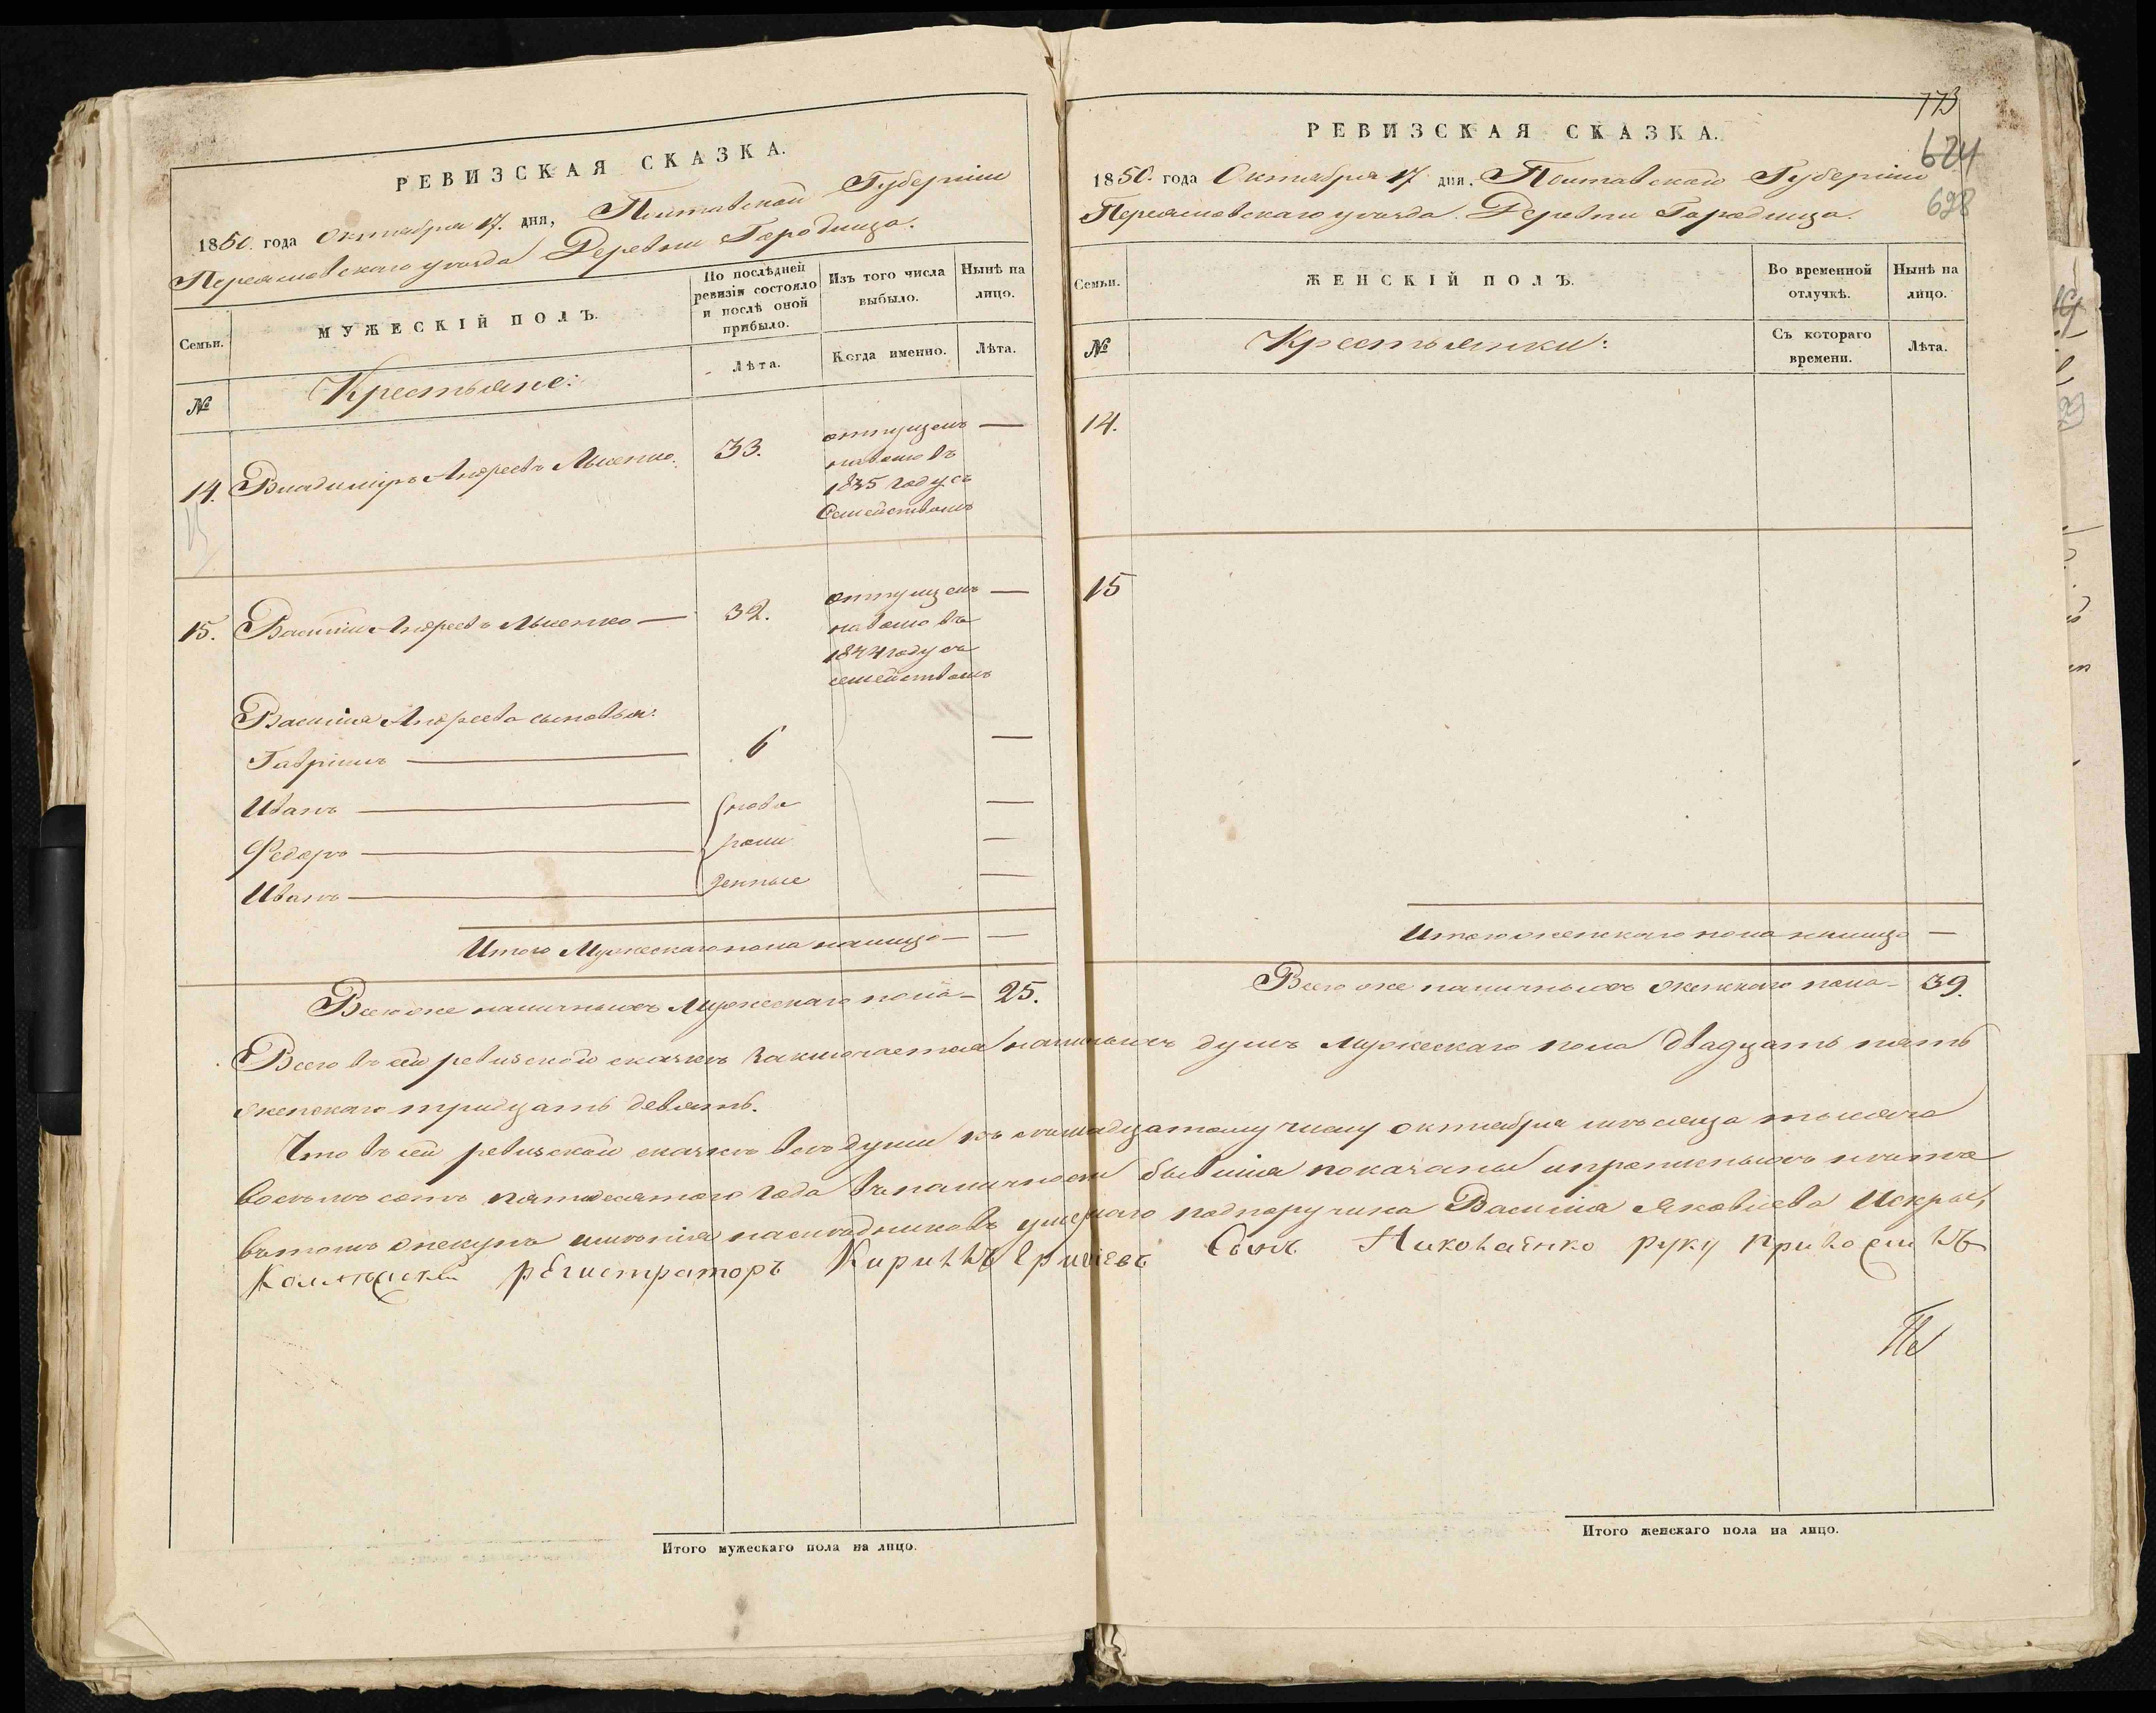 РЕВИЗСКАЯ СКАЗКА.
1850. года Октября 17. дня, Полтавской Губерніи
Переяславскаго уѣзда Деревни Городища.
Семьи.
МУЖЕСКІЙ ПОЛЪ.
По послѣдней
ревизіи состояло
и послѣ оной
прибыло.
Изъ того числа
выбыло.
Нынѣ на
лицо.
№
Крестьяне:
Лѣта.
Когда именно.
Лѣта.
14. Владиміръ Андреевъ Лысенко. 33. отпущенъ —
на волю въ
1835 году съ
Семействомъ
15. Василій Андреевъ Лысенко — 32. отпущенъ —
на волю въ
1844 году съ
семействомъ
Василія Андреева сыновья:
Гавріилъ — 6 —
Иванъ — ново —
Федоръ — рож —
Иванъ — денные —
Итого Мужескаго пола налицо — —
Всего же наличныхъ Мужескаго пола — 25.
173
624
698
РЕВИЗСКАЯ СКАЗКА.
1850. года Октября 17. дня, Полтавской Губерніи
Переяславскаго уѣзда. Деревни Городища.
Семьи.
ЖЕНСКІЙ ПОЛЪ.
Во временной
отлучкѣ.
Нынѣ на
лицо.
№
Крестьянки:
Съ котораго
времени.
Лѣта.
14.
15
Итого женскаго пола налицо —
Всего же наличныхъ женскаго пола — 39.
Всего въ сей ревизской сказкѣ заключается наличныхъ душъ мужескаго пола двадцать пять
женскаго тридцать девять.
Что въ сей ревизской сказкѣ всѣ души къ семнадцатому числу октября мѣсяца тысяча
восемь сотъ пятидесятого года въ наличности бывшія показаны и прописныхъ нѣтъ
въ томъ опекунъ имѣнія наслѣдниковъ умершаго подпоручика Василія Яковлева Искры,
Колежскій регистраторъ Кирилъ Сынъ Николаенко руку приложилъ
Итого мужескаго пола на лицо.
Итого женскаго пола на лицо.